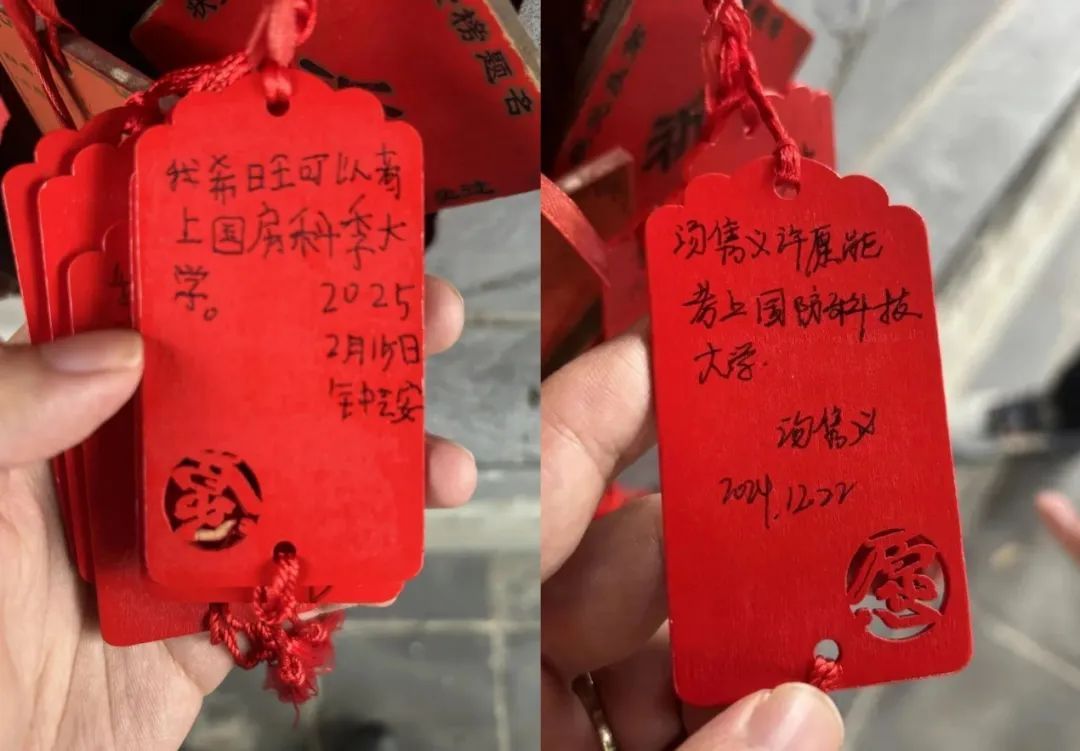 我希旺可以考
上国房科季大
学。
2025
2月15日
钟芸安
榜题名
汤隽义许愿能
考上国防科技
大学.
汤隽义
2024.12.22
愿
愿